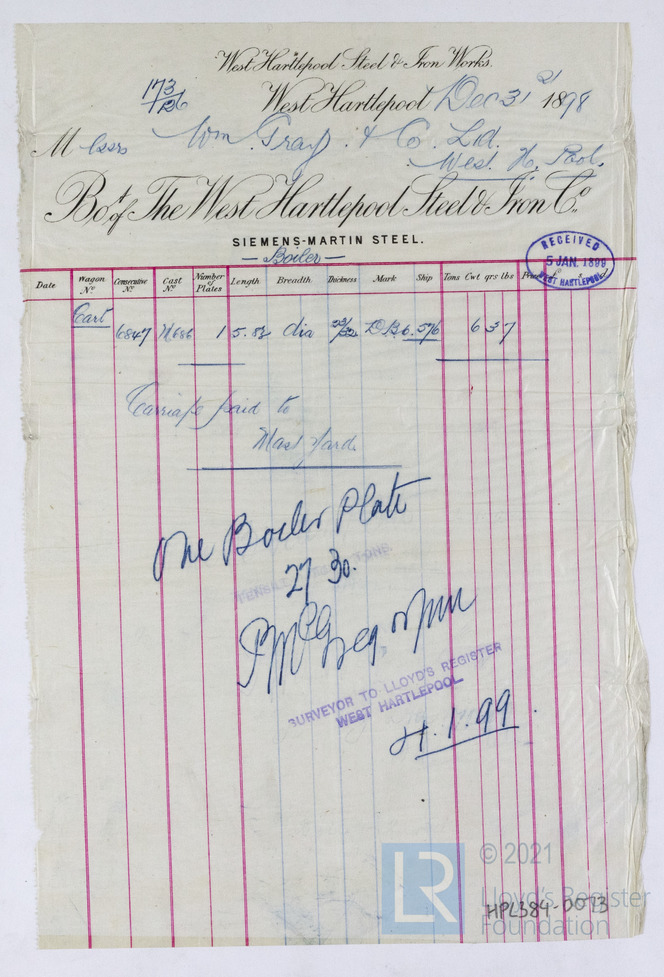 West Hartlepool Steel & Iron Works.
173
West Hartlepool Dec 31 1898
Messrs Wm Gray & Co. Ltd.
West H. Pool.
Bot of The West Hartlepool Steel & Iron Co.
SIEMENS-MARTIN STEEL.
— Boiler —
RECEIVED
5 JAN. 1899
WEST HARTLEPOOL
Date Wagon No Consecutive No Cast No Number of Plates Length Breadth Thickness Mark Ship Tons Cwt qrs lbs
Cart
6847 1 dia 576 6 3 7
Carriage paid to
Mast Yard
One Boiler Plate
27 30.
TENSILE
SURVEYOR TO LLOYD'S REGISTER
WEST HARTLEPOOL
4.1.99.
LR © 2021
Lloyd's Register
Foundation
HPL384-0073